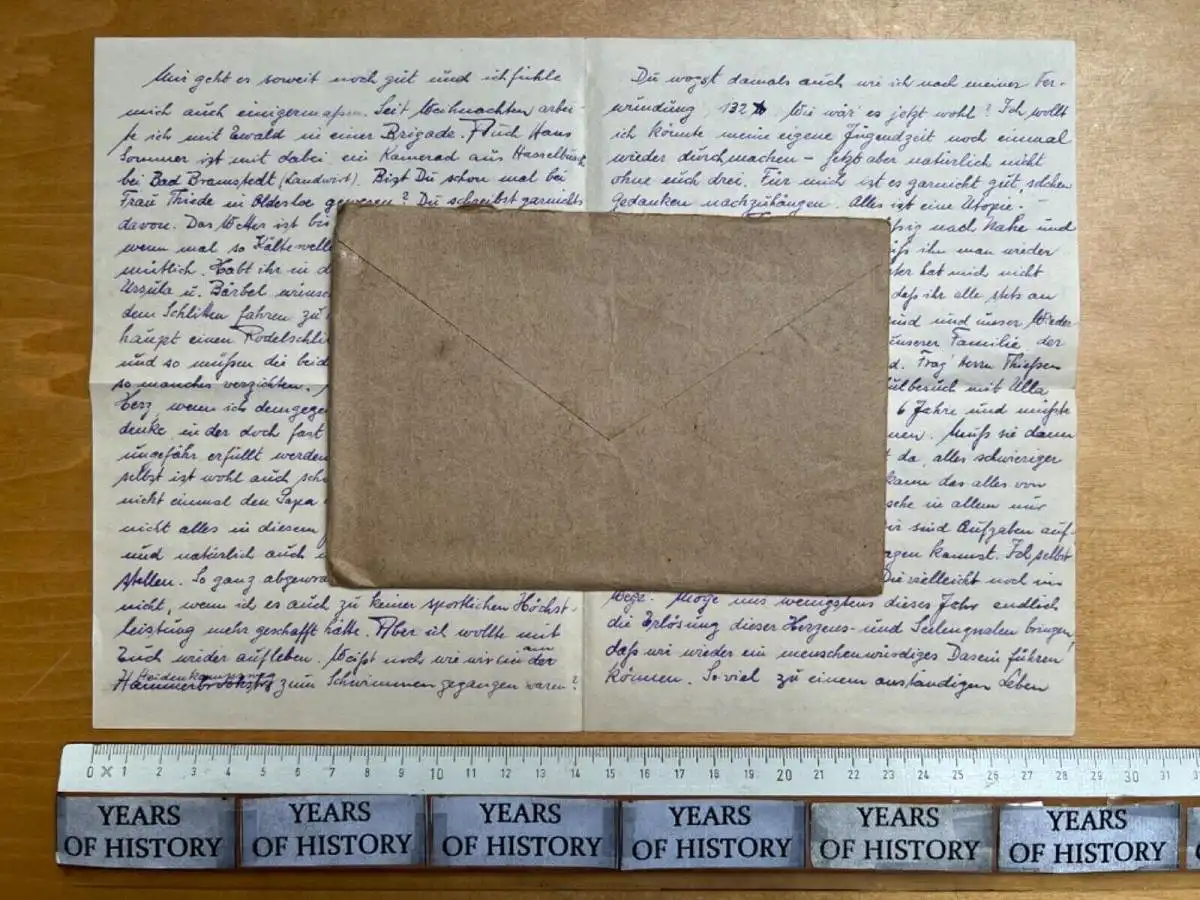 Mir geht es soweit noch gut und ich fühle
mich auch einigermaßen. Seit Weihnachten arbei-
te ich mit Ewald in einer Brigade. Auch Hans
Sommer ist mit dabei, ein Kamerad aus
bei Bad Bramstedt (Landwirt). Bist Du schon mal bei
Frau Thiede in Oldesloe gewesen? Du schreibst garnichts
davon. Das Wetter ist bis
wenn mal so Kältewelle
mütlich. Habt ihr in d
Ursula u. Bärbel wünsc
dem Schlitten fahren zu
haupt einen Rodelschli
und so müßen die beid
so manches verzichten.
Herz, wenn ich demgege
denke, in der doch fast
ungefähr erfüllt werden
selbst ist wohl auch sch
nicht einmal den Papa
nicht alles in diesem
und natürlich auch
stellen. So ganz abgewra
nicht, wenn ich es auch zu keiner sportlichen Höchst-
leistung mehr geschafft hätte. Aber ich wollte mit
Euch wieder aufleben. Weißt noch wie wir an der
zum Schwimmen gegangen waren?
Du wogst damals auch wie ich nach meiner Ver-
wundung, 132 ℔. Wie wär' es jetzt wohl? Ich wollt
ich könnte meine eigene Jugendzeit noch einmal
wieder durchmachen – jetzt aber natürlich nicht
ohne euch drei. Für mich ist es garnicht gut, solchen
Gedanken nachzuhängen. Alles ist eine Utopie.
ssig nach Nahe und
ß ihn man wieder
ter hat mich nicht
daß ihr alle stets an
und unser Wieder-
unserer Familie der
d. Frag' Herrn Thießen
ulbesuch mit Ulla
6 Jahre und müßte
men. Muß sie dann
t da, alles schwieriger
kann das alles von
sehe in allem nur
ir sind Aufgaben auf-
agen kannst. Ich selbst
Die vielleicht noch im
Wege. Möge uns wenigstens dieses Jahr endlich
die Erlösung dieser Herzens- und Seelenqualen bringen,
daß wir wieder ein menschenwürdiges Dasein führen
können. Soviel zu einem anständigen Leben
0 1 2 3 4 5 6 7 8 9 10 11 12 13 14 15 16 17 18 19 20 21 22 23 24 25 26 27 28 29 30 31
YEARS
OF HISTORY
YEARS
OF HISTORY
YEARS
OF HISTORY
YEARS
OF HISTORY
YEARS
OF HISTORY
YEARS
OF HISTORY